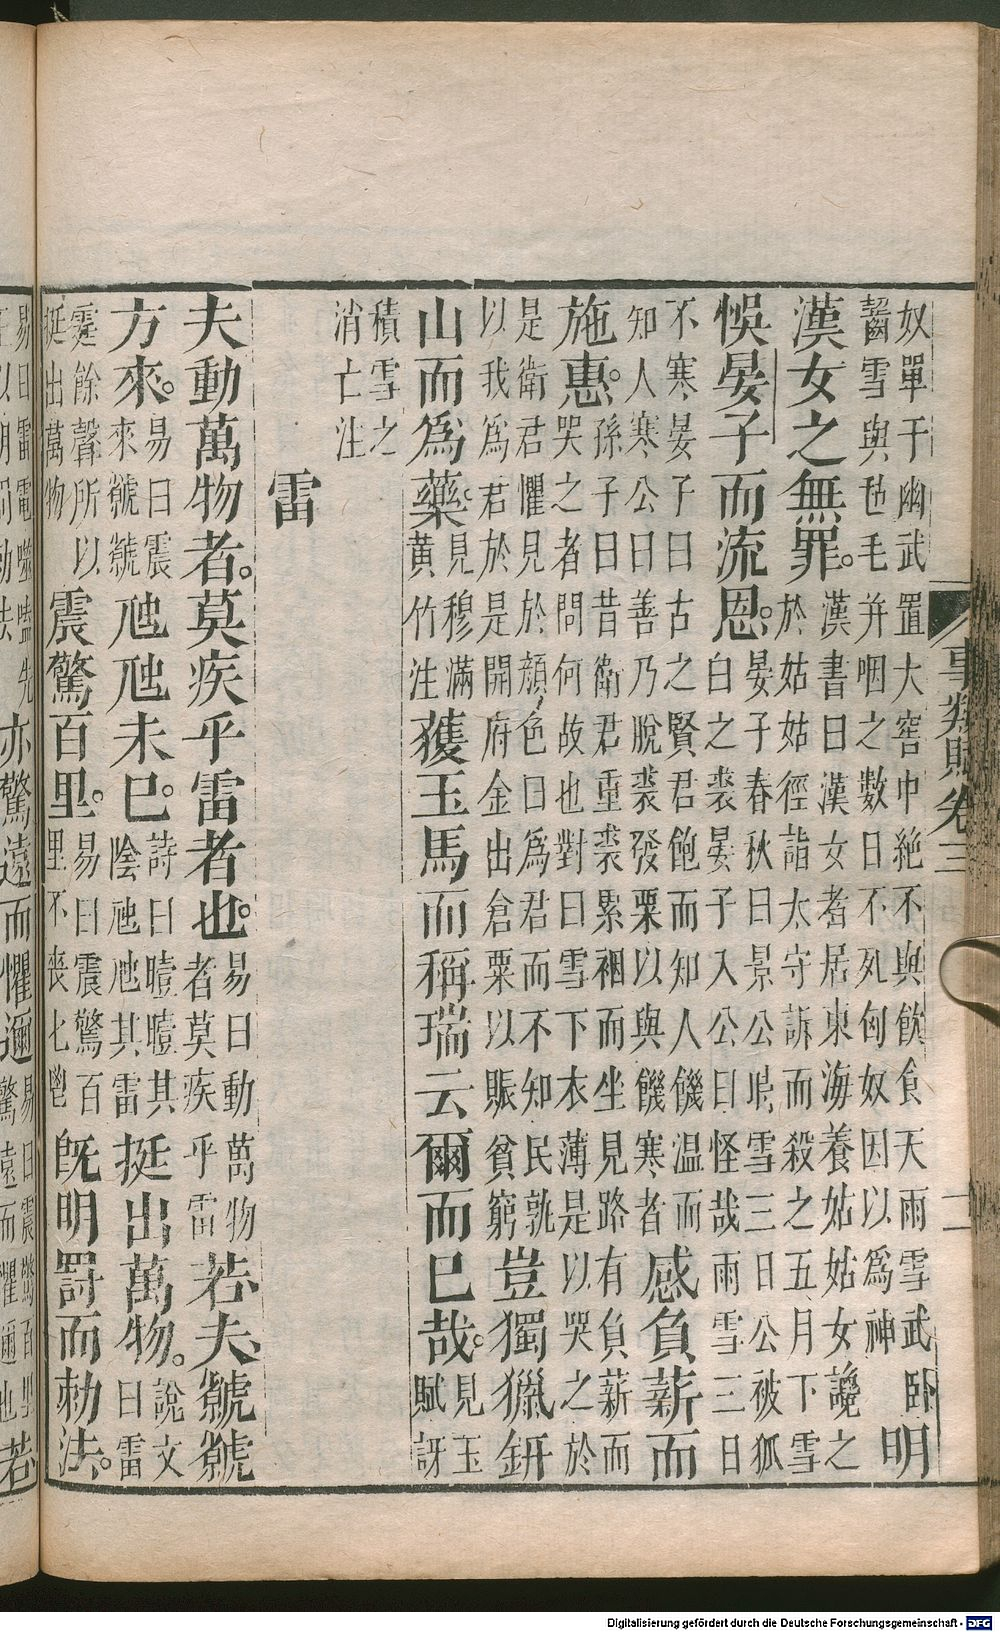 事類賦卷三
奴單于幽武置大窖中絕不與飲食天雨雪武臥
齧雪與毡毛并咽之數日不死匈奴因以爲神
明
漢女之無罪。
漢書曰漢女者居東海養姑姑女讒之
於姑姑徑詣太守訴而殺之五月下雪
悞晏子而流恩。
晏子春秋曰景公時雪三日公被狐
白之裘晏子入公曰怪哉雨雪三日
不寒晏子曰古之賢君飽而知人饑溫而
知人寒公曰善乃脫裘發粟以與饑寒者
感負薪而
施惠。
孫子曰昔衛君重裘累裀而坐見路有負薪而
哭之者問何故也對曰雪下衣薄是以哭之於
是衛君懼見於顏色曰爲君而不知民孰
以我爲君於是開府金出倉粟以賑貧窮
豈獨獵鈃
山而爲藥。
見穆滿
黃竹注
獲玉馬而稱瑞云爾而已哉。
見玉
賦訝
積雪之
消亡注
雷
夫動萬物者。莫疾乎雷者也。
易曰動萬物
者莫疾乎雷
若夫虩虩
方來。
易曰震
來虩虩
虺虺未已。
詩曰曀曀其
陰虺虺其雷
挺出萬物。
說文
曰雷
霆餘聲所以
挺出萬物
震驚百里。
易曰震驚百
里不喪匕鬯
旣明罰而勅法。
易曰雷電噬嗑先
以明罰勅法
亦驚遠而懼邇
易曰震驚百里
驚遠而懼邇也
若
Digitalisierung gefördert durch die Deutsche Forschungsgemeinschaft - DFG